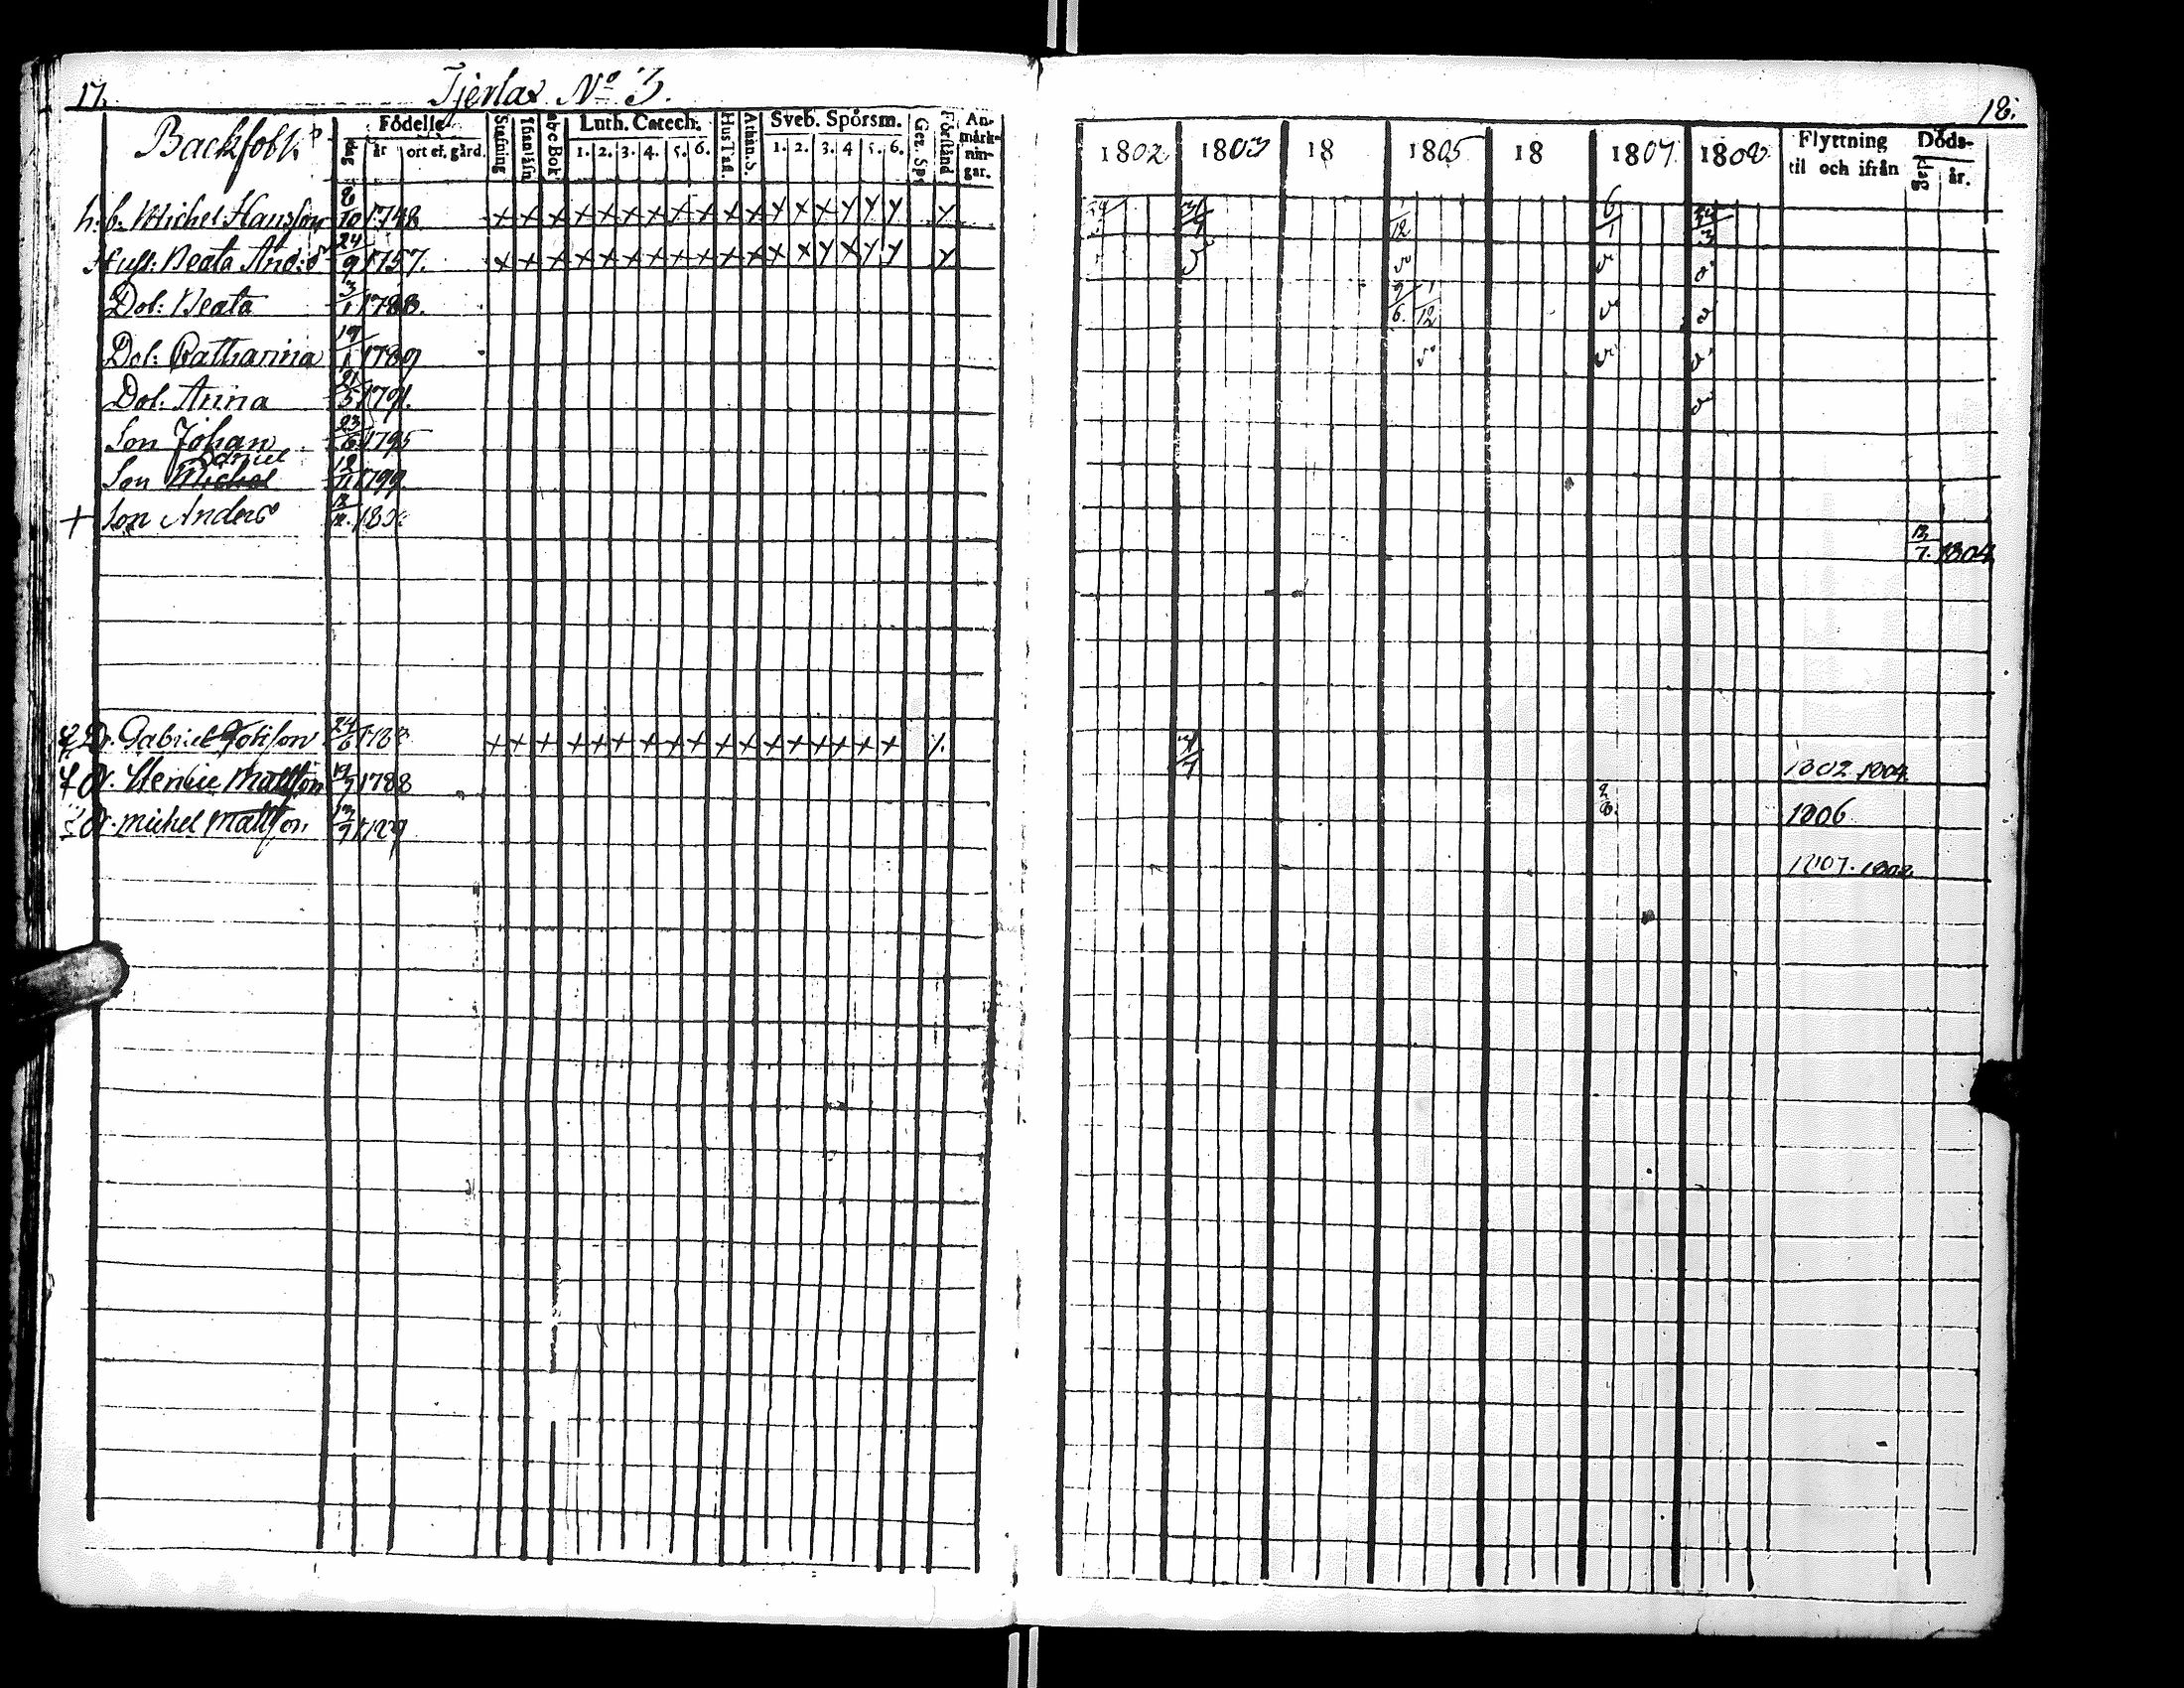 17.
Tjerlax No 3.
Backfolk
Födelse-
dag år ort el. gård.
Stafning
abc Bok
Luth. Catech.
1. 2. 3. 4. 5. 6.
Hus Tafl.
Athan. S.
Sveb. Spörsm.
1. 2. 3. 4 5. 6.
Gez. Sp
Förstånd
An-
märk-
nin-
gar.
h: b: Michel Hansson 8/10 1748 x x x x x x x x x x x y x x y y y y
Hust: Beata And:s 24/9 1757. x x x x x x x x x x x x x y x y y y
Dot: Beata 3/1 1788.
Dot: Catharina 19/1 1789
Dot: Anna 21/5 1791.
Son Johan 23/6 1795
Daniel
Son Michel 18/11 1799
+ Son Anders 12.
Dr. Gabriel Johsson 24/6 x x x x x x x x x x x x x x x x x
Dr. Mattsson 1788
Dr. Michel Mattsson 13/9
18.
1802 1803 18 1805 18 1807 1808
Flyttning
til och ifrån
Döds-
dag år.
1/12 6/1
v v v
9/6. 1/12 v v
v v v
v
13/7. 1804
1802 1804
1806
1807. 1808